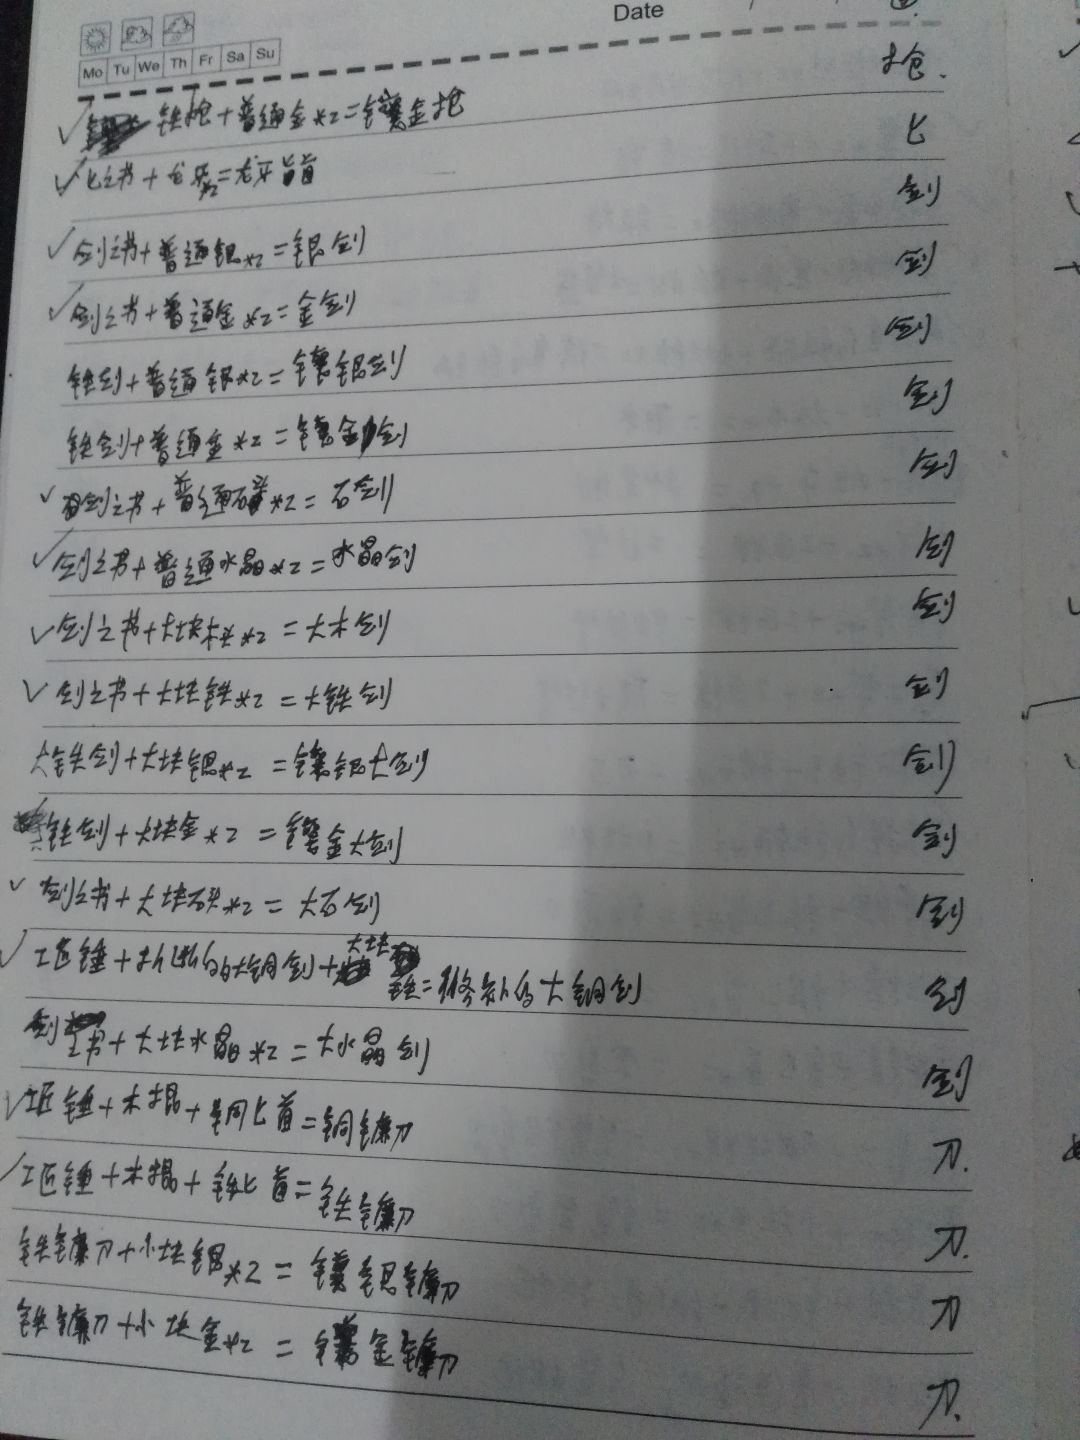 Date
Mo Tu We Th Fr Sa Su
枪.
✓ 铁枪+普通金*2=镶金枪
匕
✓ 匕之书+龙牙*2=龙牙匕首
剑
✓ 剑之书+普通银*2=银剑
剑
✓ 剑之书+普通金*2=金剑
剑
铁剑+普通银*2=镶银剑
剑
铁剑+普通金*2=镶金剑
剑
✓ 剑之书+普通石*2=石剑
剑
✓ 剑之书+普通水晶*2=水晶剑
剑
✓ 剑之书+大块木头*2=大木剑
剑
✓ 剑之书+大块铁*2=大铁剑
剑
大铁剑+大块银*2=镶银大剑
剑
铁剑+大块金*2=镶金大剑
剑
✓ 剑之书+大块石头*2=大石剑
剑
✓ 工匠锤+折断的大铜剑+大块
铁=修补的大铜剑
剑
剑之书+大块水晶*2=大水晶剑
✓ 工匠锤+木棍+铜匕首=铜镰刀
刀.
✓ 工匠锤+木棍+铁匕首=铁镰刀
刀.
铁镰刀+小块银*2=镶银镰刀
刀
铁镰刀+小块金*2=镶金镰刀
刀.